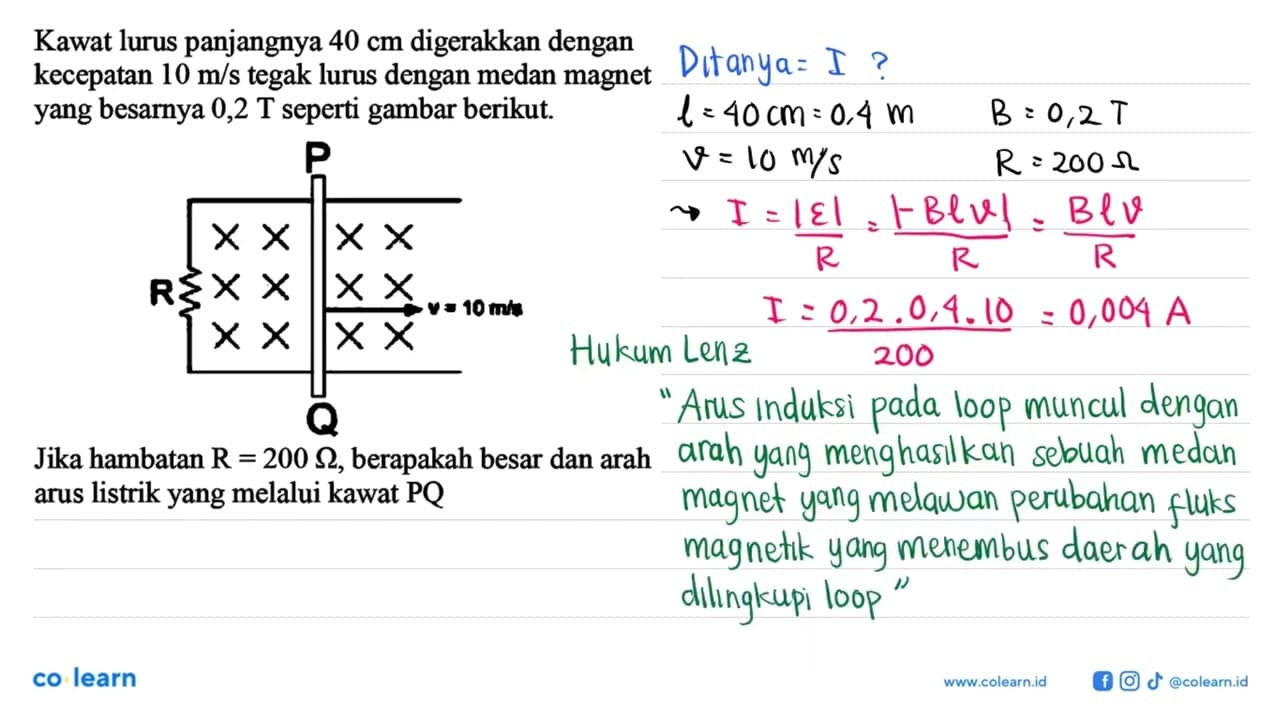 Kawat lurus panjangnya 40 cm digerakkan dengan
kecepatan 10 m/s tegak lurus dengan medan magnet
yang besarnya 0,2 T seperti gambar berikut.
P
X X X X
R X X X X
v = 10 m/s
X X X X
Q
Jika hambatan R = 200 Ω, berapakah besar dan arah
arus listrik yang melalui kawat PQ
Ditanya = I ?
l = 40 cm = 0,4 m B = 0,2 T
v = 10 m/s R = 200 Ω
→ I = |ε|/R = |-Blv|/R = Blv/R
I = 0,2 . 0,4 . 10 / 200 = 0,004 A
Hukum Lenz
"Arus induksi pada loop muncul dengan
arah yang menghasilkan sebuah medan
magnet yang melawan perubahan fluks
magnetik yang menembus daerah yang
dilingkupi loop"
co learn
www.colearn.id
@colearn.id